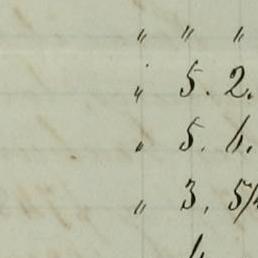 " " "
" 5. 2.
" 5. 6.
" 3. 5/